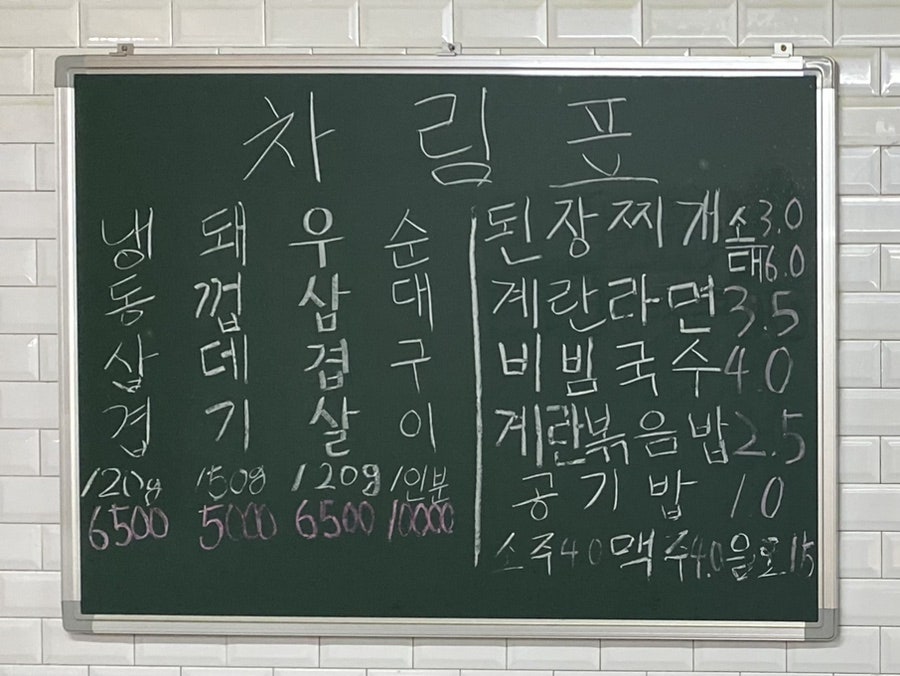 차림표
냉동삼겹
120g
6500
돼껍데기
150g
5000
우삼겹살
120g
6500
순대구이
1인분
10000
된장찌개 소 3.0
대 6.0
계란라면 3.5
비빔국수 4.0
계란볶음밥 2.5
공기밥 10
소주 40 맥주 4.0 음료 15